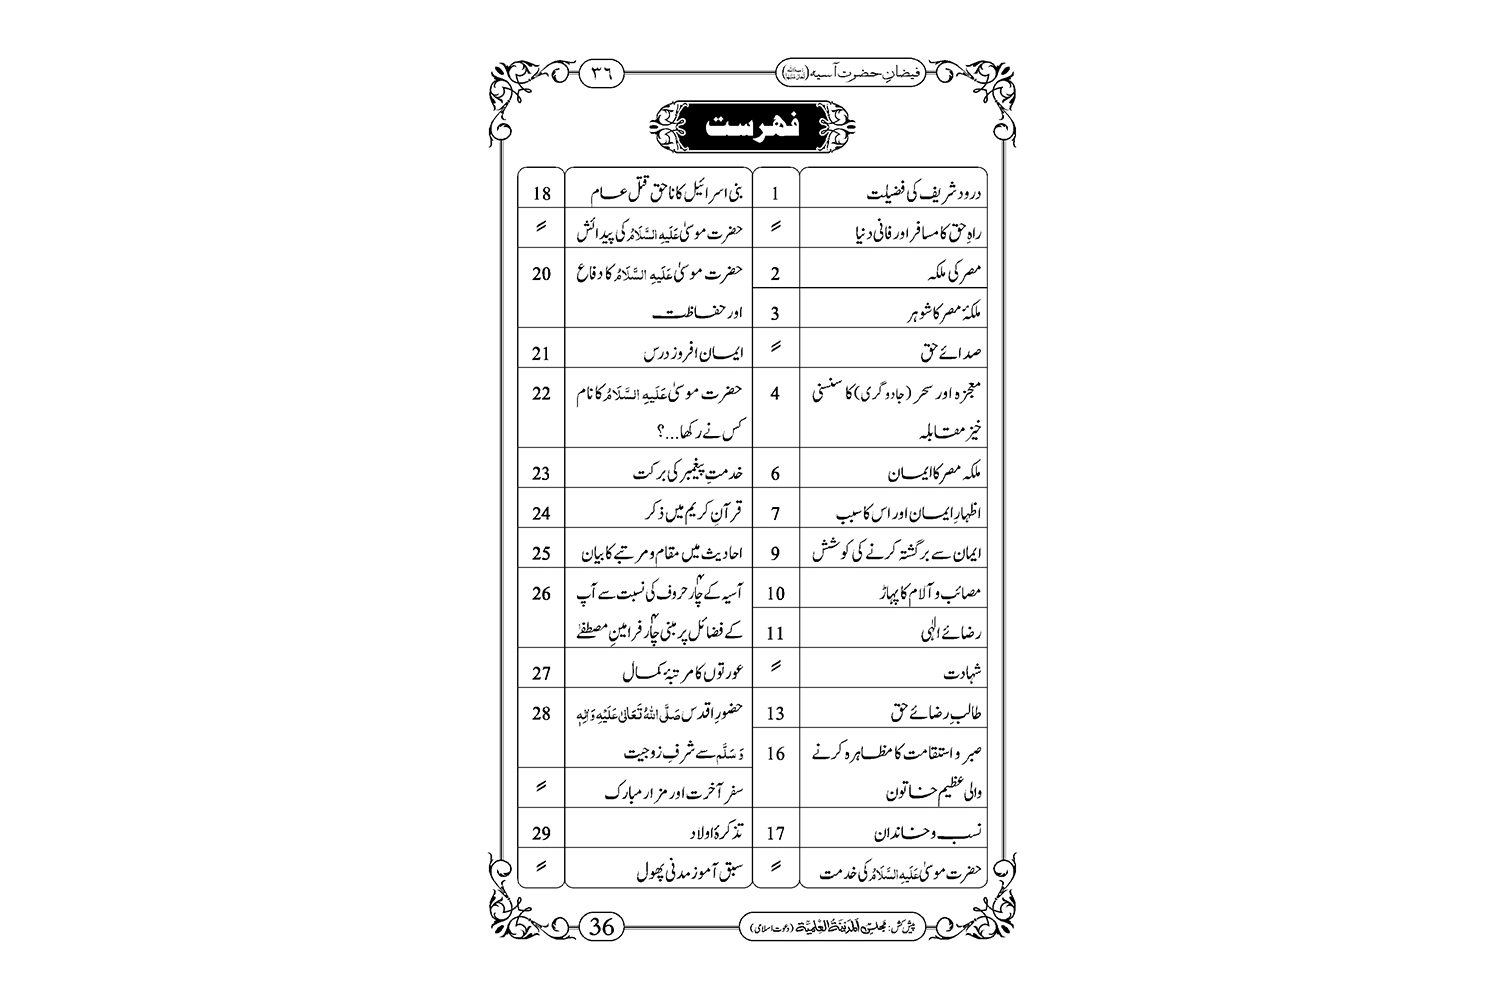 فیضانِ حضرت آسیہ (رَضِیَ اللّٰہُ تَعَالٰی عَنْہَا) ٣٦
فہرست
درود شریف کی فضیلت 1
راہِ حق کا مسافر اور فانی دنیا 〃
مصر کی ملکہ 2
ملکۂ مصر کا شوہر 3
صدائے حق 〃
معجزہ اور سحر (جادوگری) کا سنسنی 4
خیز مقابلہ
ملکہ مصر کا ایمان 6
اظہارِ ایمان اور اس کا سبب 7
ایمان سے برگشتہ کرنے کی کوشش 9
مصائب و آلام کا پہاڑ 10
رضائے الٰہی 11
شہادت 〃
طالبِ رضائے حق 13
صبر و استقامت کا مظاہرہ کرنے 16
والی عظیم خاتون
نسب و خاندان 17
حضرت موسیٰ عَلَیْہِ السَّلَامُ کی خدمت 〃
بنی اسرائیل کا ناحق قتل عام 18
حضرت موسیٰ عَلَیْہِ السَّلَامُ کی پیدائش 〃
حضرت موسیٰ عَلَیْہِ السَّلَامُ کا دفاع 20
اور حفاظت
ایمان افروز درس 21
حضرت موسیٰ عَلَیْہِ السَّلَامُ کا نام 22
کس نے رکھا...؟
خدمتِ پیغمبر کی برکت 23
قرآنِ کریم میں ذکر 24
احادیث میں مقام و مرتبے کا بیان 25
آسیہ کے چار۴ حروف کی نسبت سے آپ 26
کے فضائل پر مبنی چار۴ فرامینِ مصطفےٰ
عورتوں کا مرتبۂ کمال 27
حضورِ اقدس صَلَّی اللّٰہُ تَعَالٰی عَلَیْہِ وَاٰلِہٖ 28
وَسَلَّم سے شرفِ زوجیت
سفرِ آخرت اور مزار مبارک 〃
تذکرۂ اولاد 29
سبق آموز مدنی پھول 〃
پیش کش: مجلس المدینۃ العلمیۃ (دعوتِ اسلامی) 36